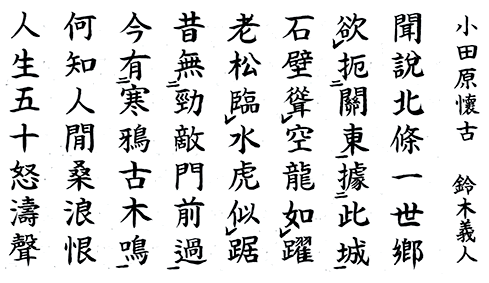 小田原懷古 鈴木義人
聞說北條一世鄉
欲扼關東據此城
石壁聳空龍如躍
老松臨水虎似踞
昔無勁敵門前過
今有寒鴉古木鳴
何知人間桑浪恨
人生五十怒濤聲